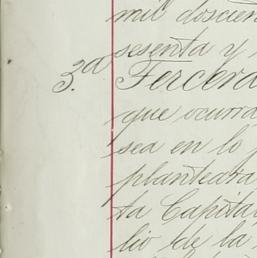 mil doscien
sesenta y
3.a Tercera
que ocurra
sea en lo
planteara
ta Capital
lio de la